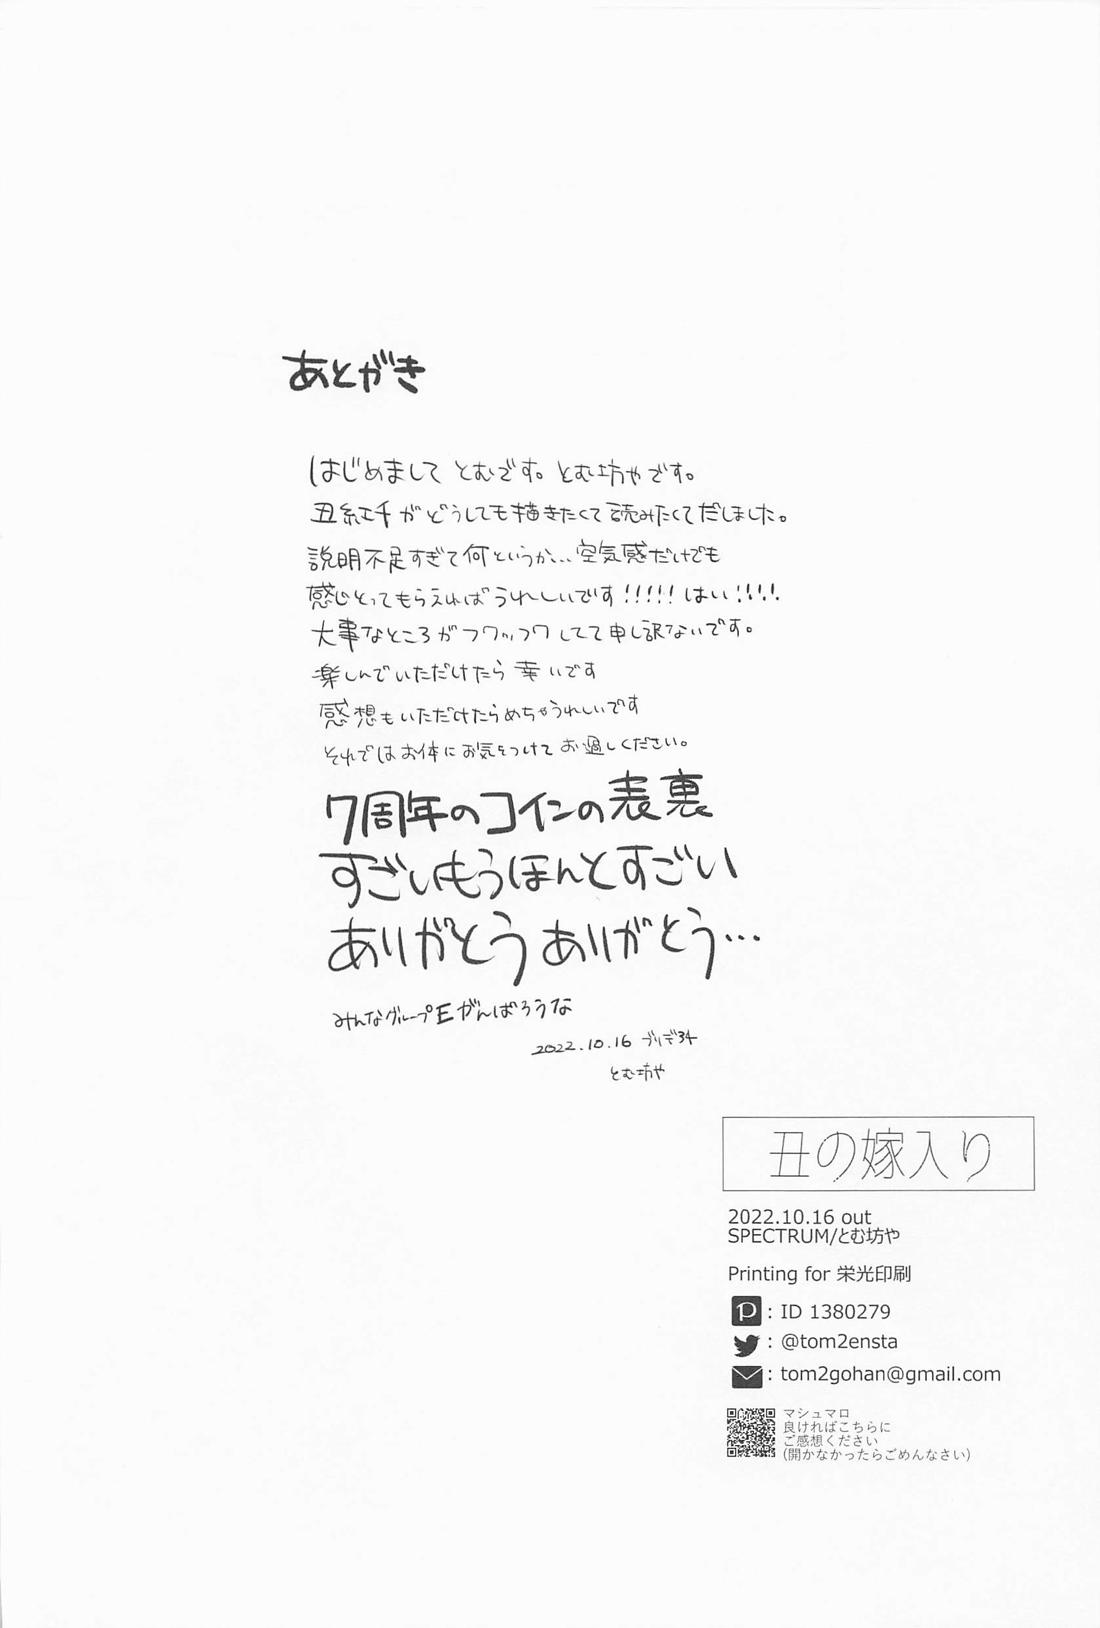 あとがき
はじめまして とむです。とむ坊やです。
丑紅千がどうしても描きたくて読みたくてだしました。
説明不足すぎて何というか…空気感だけでも
感じとってもらえればうれしいです!!!!!はい!!!!
大事なところがフワッフワしてて申し訳ないです。
楽しんでいただけたら幸いです
感想もいただけたらめちゃうれしいです
それではお体にお気をつけてお過しください。
7周年のコインの表裏
すごいもうほんとすごい
ありがとうありがとう…
みんなグループEがんばろうな
2022.10.16 ブリデ34
とむ坊や
丑の嫁入り
2022.10.16 out
SPECTRUM/とむ坊や
Printing for 栄光印刷
P : ID 1380279
: @tom2ensta
: tom2gohan@gmail.com
マシュマロ
良ければこちらに
ご感想ください
(開かなかったらごめんなさい)